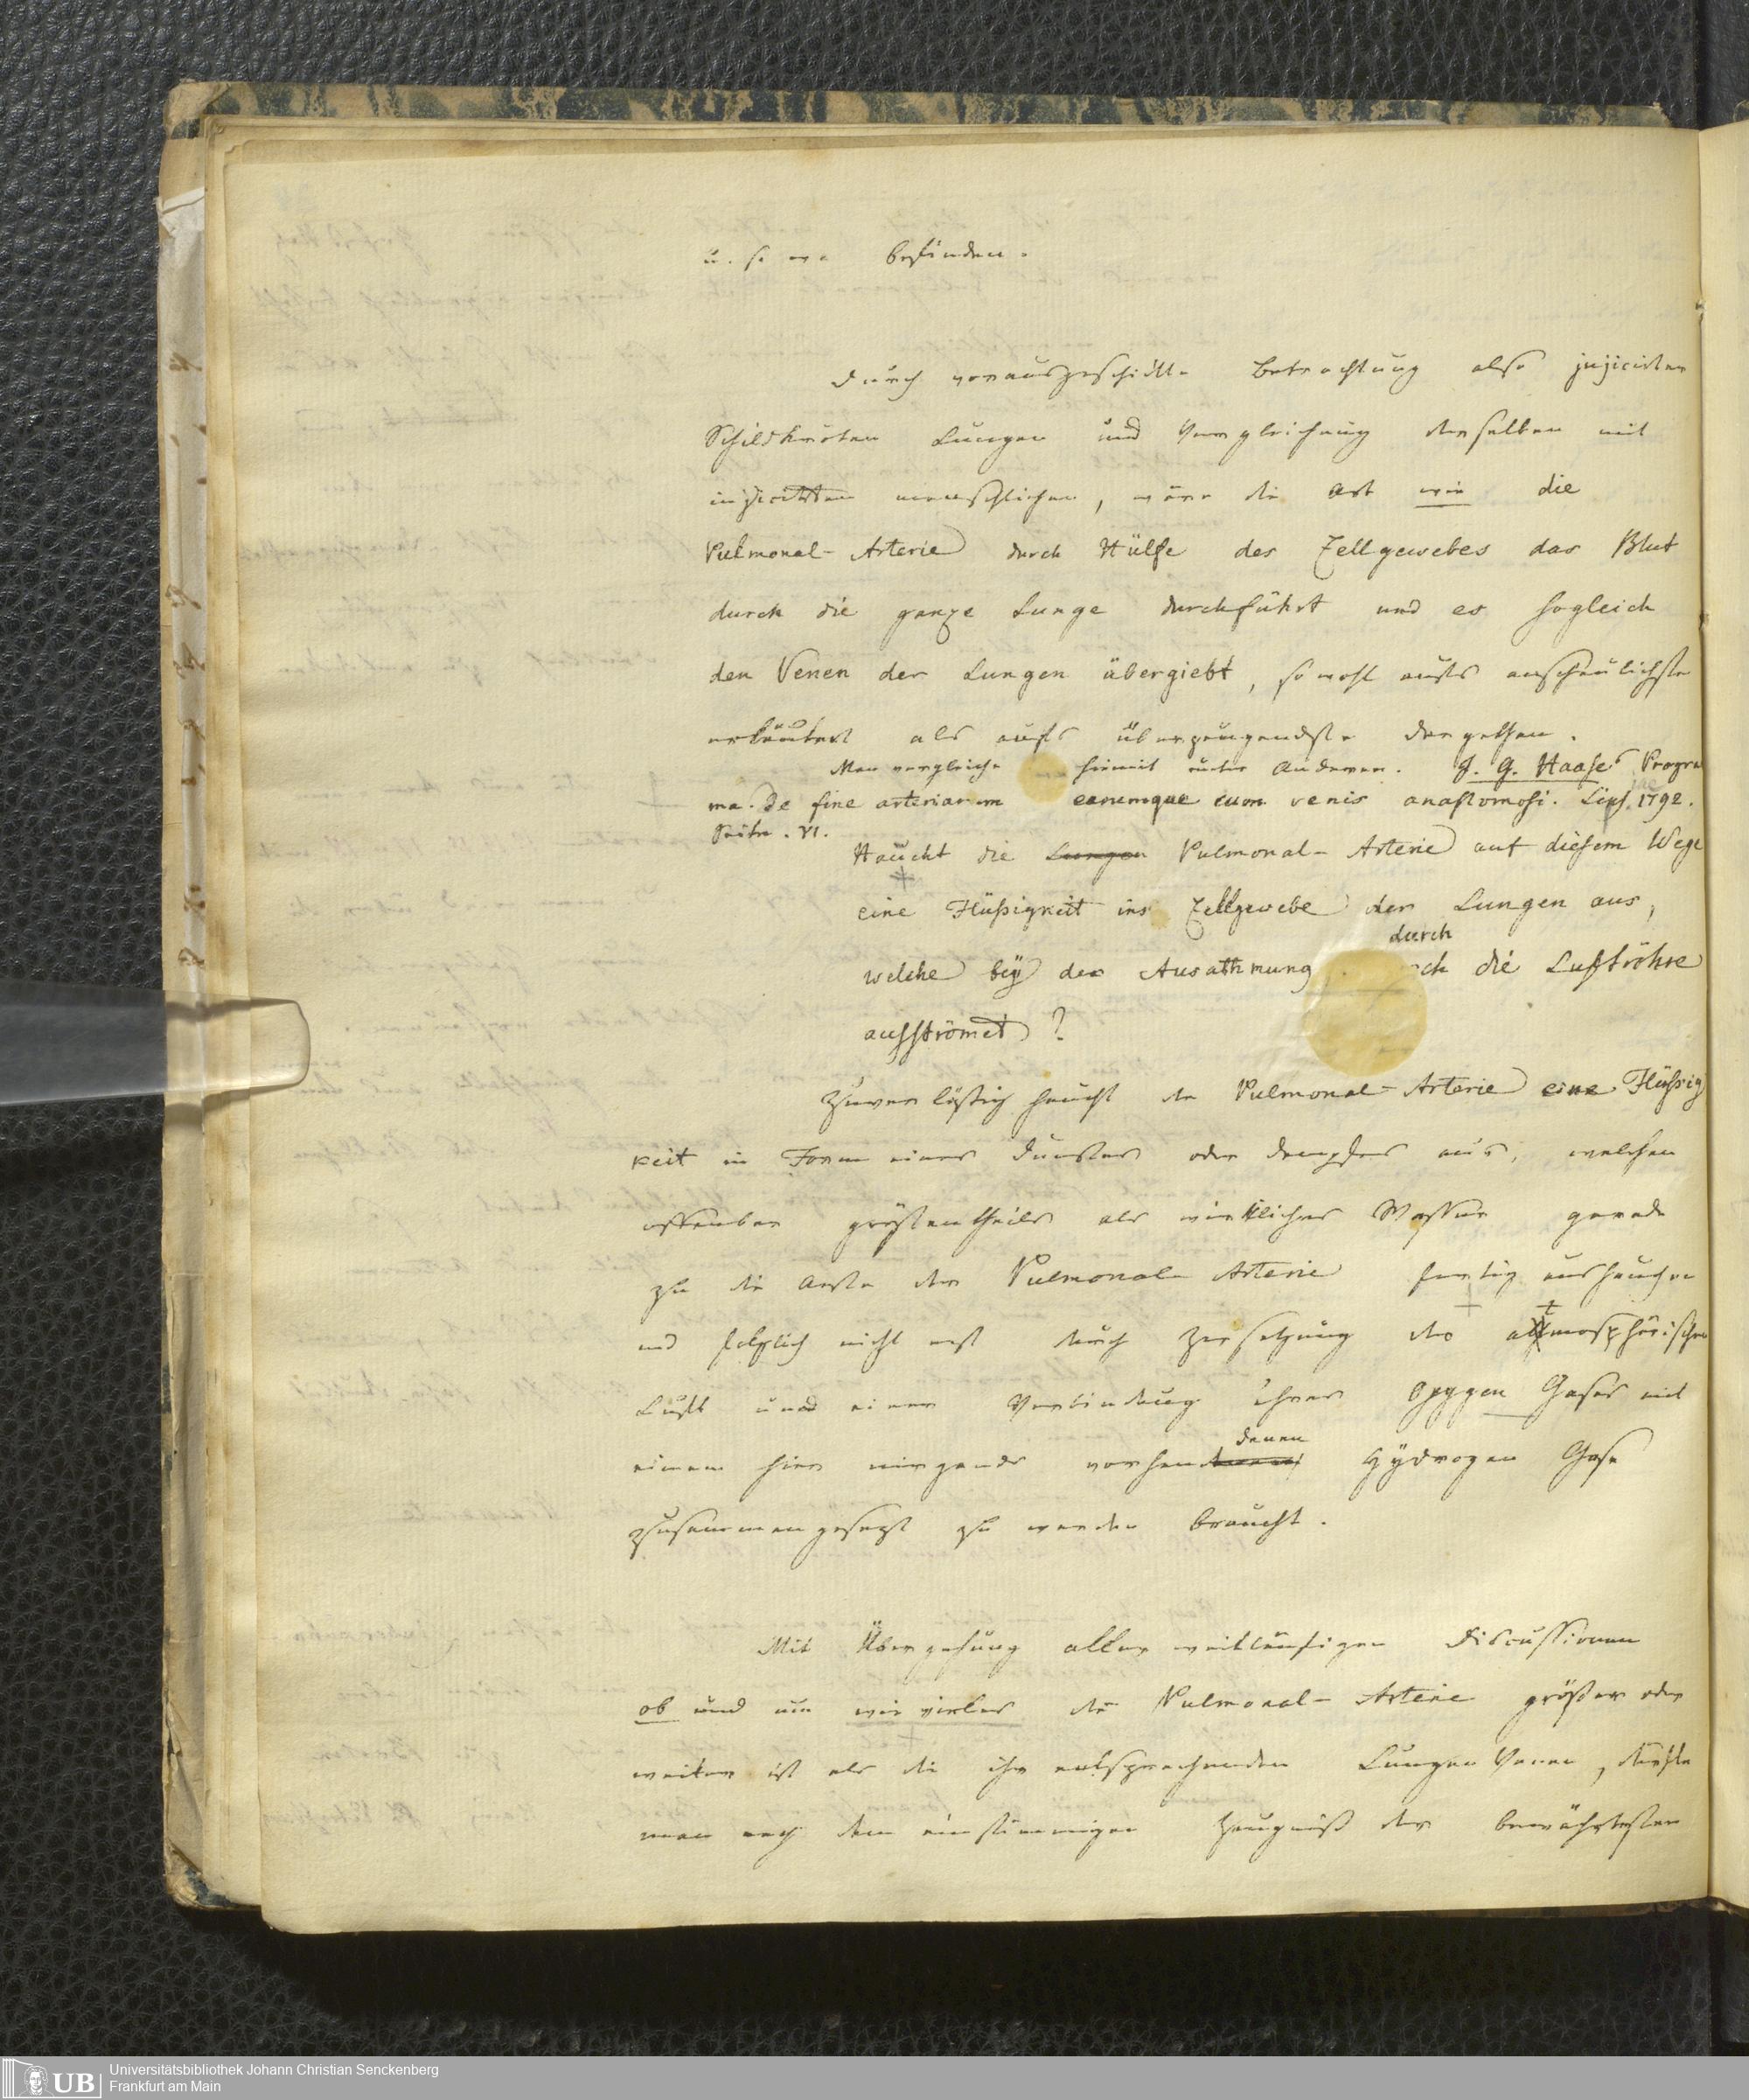 u. s. w. befinden.
Durch vorausgeschickte Betrachtung also injicirter
Schildkröten Lungen und Vergleichung derselben mit
injicirten menschlichen, wäre die Art wie die
Pulmonal-Arterie durch Hülfe des Zellgewebes das Blut
durch die ganze Lunge durchführt und es sogleich
den Venen der Lungen übergiebt, sowohl aufs anschaulichste
erläutert als aufs überzeugendste dargethan.
Man vergleiche hiemit unter Anderen. J. G. Haase's Program
ma. De fine arteriarum earumque cum venis anastomosi. Lips. 1792.
Seite. VI.
Haucht die Lungen Pulmonal-Arterie auf diesem Wege
eine Flüßigkeit ins Zellgewebe der Lungen aus,
durch
welche bey der Ausathmung die Luftröhre
ausströmet?
Zuverläßig haucht die Pulmonal-Arterie eine Flüßig
keit in Form eines Dunstes oder Dampfes aus, welchen
offenbar größtentheils als wirkliches Wasser gerade
zu die Aeste der Pulmonal-Arterie fertig aushauchen
und folglich nicht erst durch Zersetzung der atmosphärischen
Luft und einer Verbindung ihres Oxygen Gases mit
denen
einem hier nirgends vorhan Hydrogen Gase
zusammengesezt zu werden braucht.
Mit Übergehung aller weitläufigen Discussionen
ob und um wie vieles die Pulmonal-Arterie größer oder
weiter ist als die ihr entsprechenden Lungen Venen, dürfte
man nach dem einstimmigen Zeugniß der bewährtesten
UB Universitätsbibliothek Johann Christian Senckenberg
Frankfurt am Main